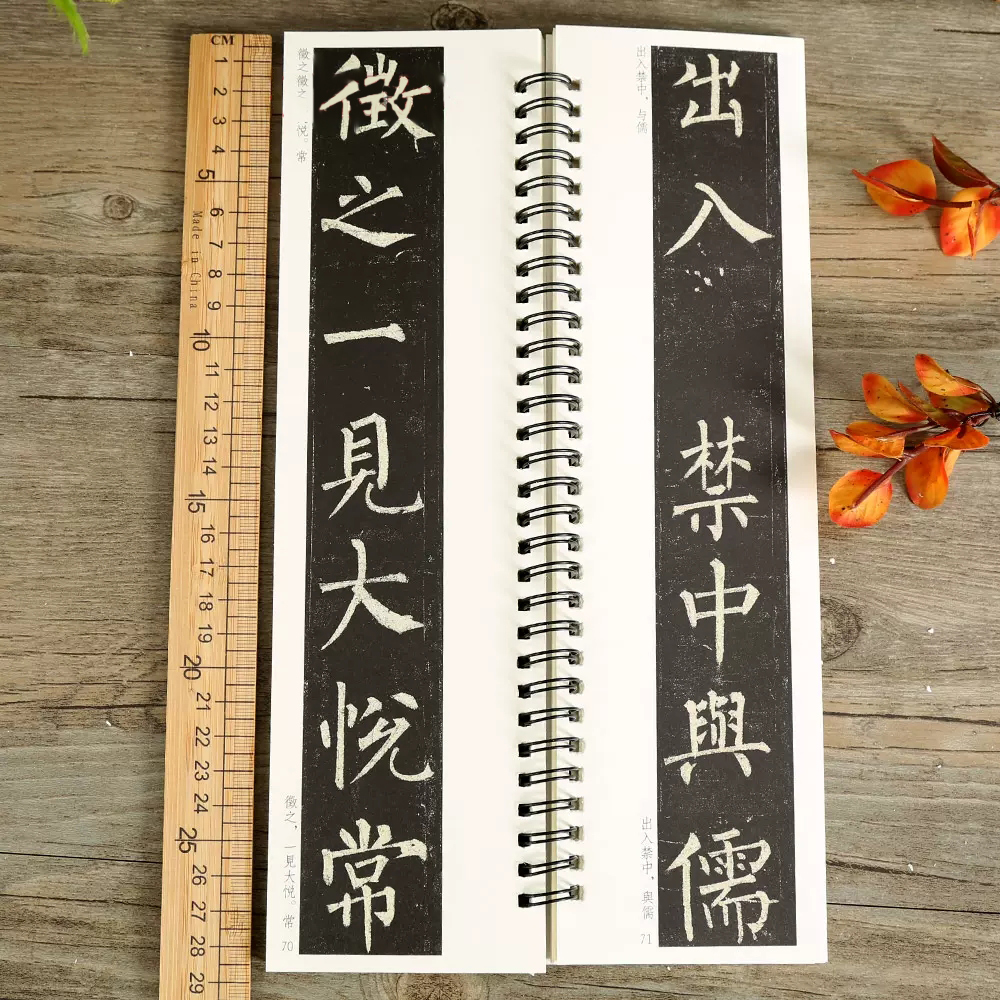 CM
1 2 3 4 5 6 7 8 9 10 11 12 13 14 15 16 17 18 19 20 21 22 23 24 25 26 27 28 29
Made in China
徵之一見大悅常
悦。常
徵之，一見大悅。常
70
出入禁中與儒
出入禁中，与儒
出入禁中，與儒
71